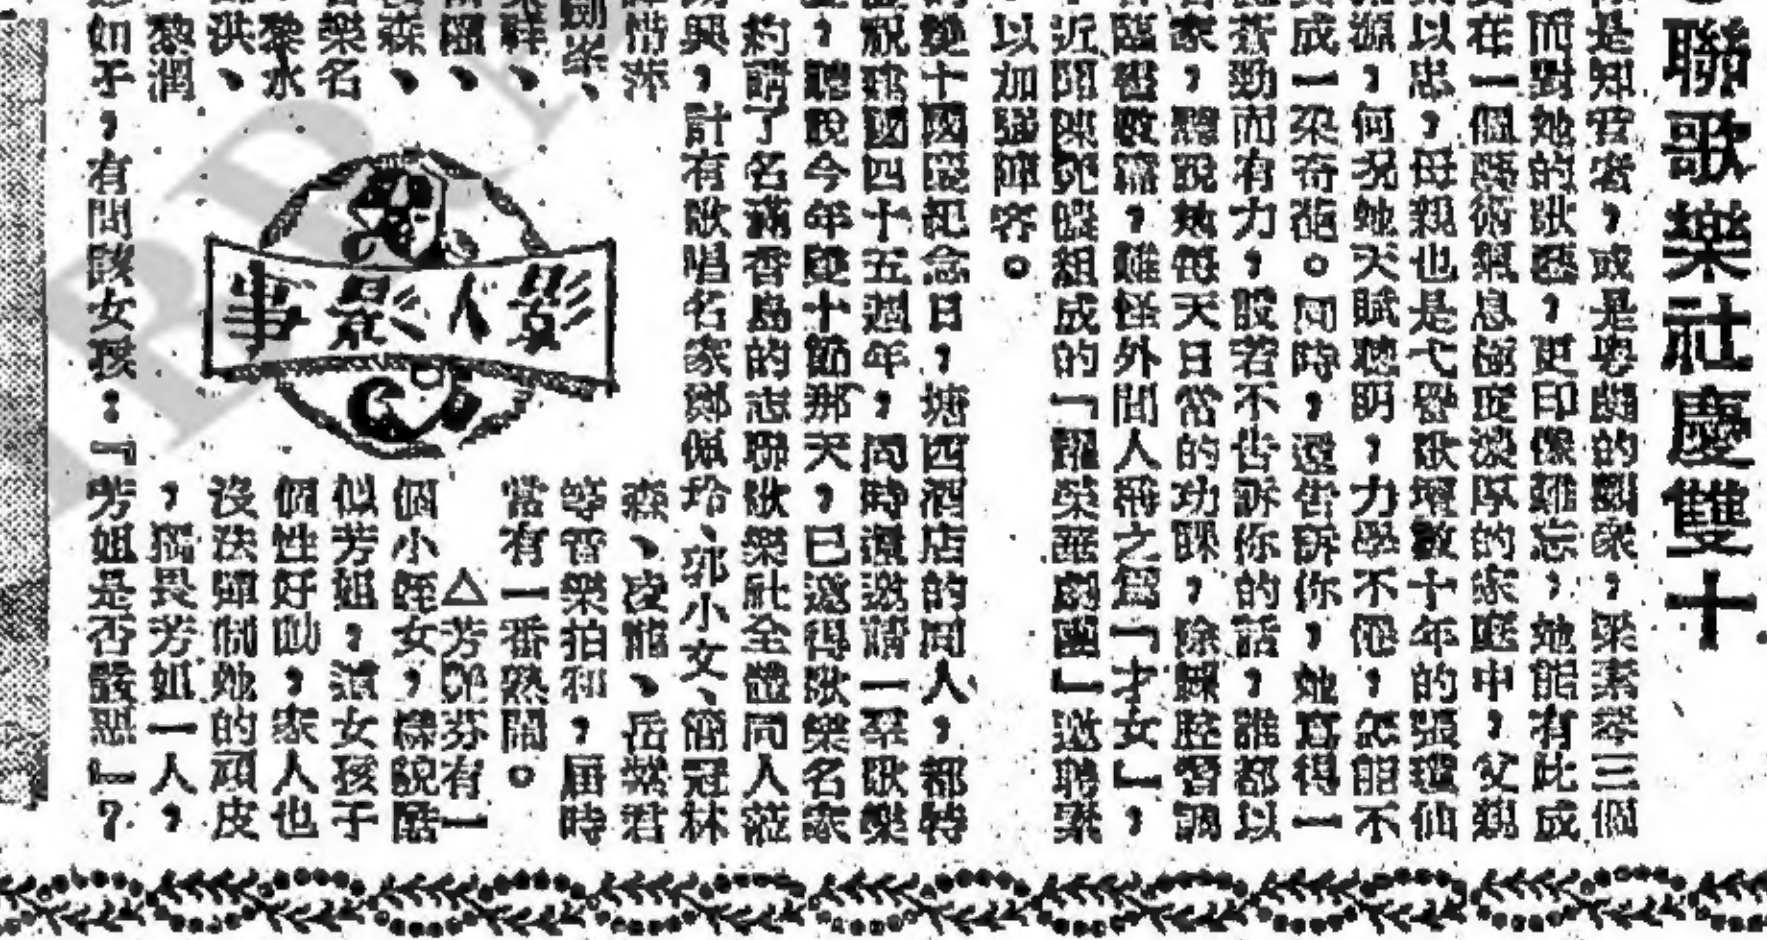 聯歌樂社慶雙十
是知音者，或是粵劇的劇家，梁素琴三個
而對她的歌藝，更印像難忘，她能有此成
在一個藝術氣息極度濃厚的家庭中，父親
以忠，母親也是弋譽歌壇數十年的張瓊仙
源，何況她天賦聰明，力學不倦，怎能不
成一朶奇葩。同時，還告訴你，她寫得一
蒼勁而有力，設若不告訴你的話，誰都以
家，聽說她每天日常的功課，除練腔習調
臨書敬籍，難怪外間人稱之爲「才女」，
近聞陳艷儂組成的「羅榮華劇團」邀聘
以加強陣容。
雙十國慶紀念日，塘西酒店的同人，都特
祝建國四十五週年，同時還邀請一羣歌樂
，聽說今年雙十節那天，已邀得歌樂名家
約請了名滿香島的志聯歌樂社全體同人蒞
興，計有歌唱名家鄭佩玲、郭小文、簡冠林
惜萍
森、凌龍、岳棠君
等音樂拍和，屆時
當有一番熱鬧。
祥、
森、
樂名
黎水
洪、
潤
影人影事
△芳艷芬有一
個小姪女，樣貌酷
似芳姐，這女孩子
個性好動，家人也
沒法彈制她的頑皮
，獨畏芳姐一人，
如子，有問該女孩：『芳姐是否嚴惡』？